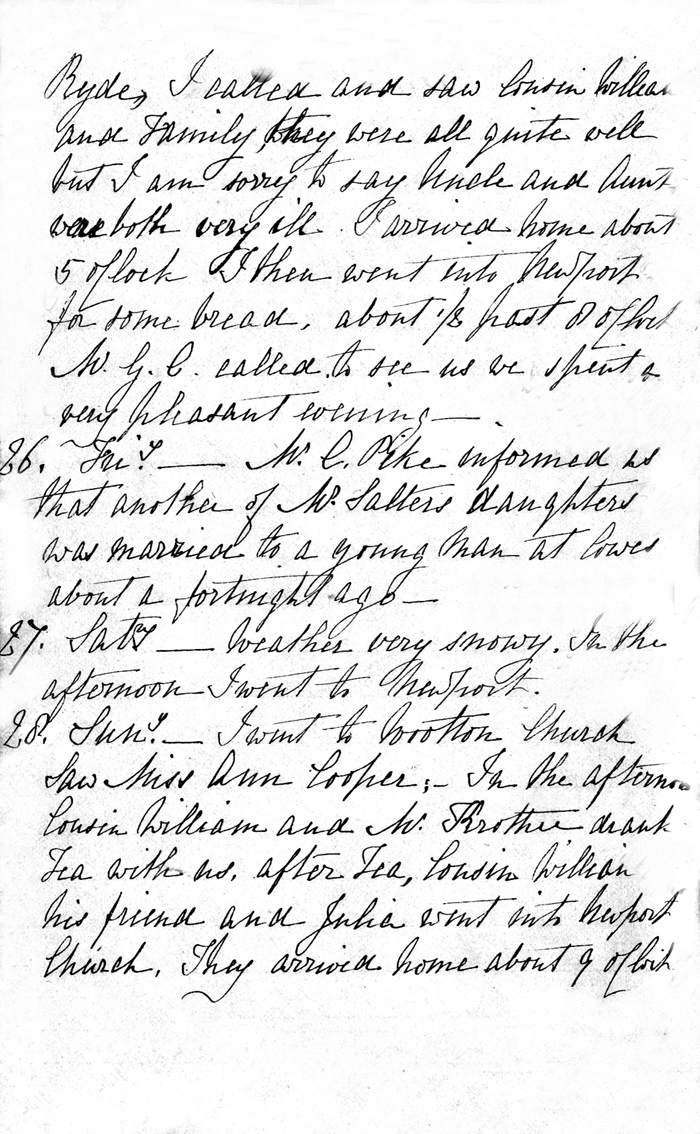 Ryde, I called and saw Cousin William
and Family they were all quite well
but I am sorry to say Uncle and Aunt
were both very ill. I arrived home about
5 o'Clock I then went into Newport
for some bread, about 1/2 past 8 o'Clock
Mr. G. C. called to see us we spent a
very pleasant evening —.
26. Friy. — Mr. C. Pike informed us
that another of Mr Salters daughters
was married to a young Man at Cowes
about a fortnight ago —
27. Saty — Weather very snowy. In the
afternoon I went to Newport.
28. Suny. — I went to Wootton Church
Saw Miss Ann Cooper;- In the afternoon
Cousin William and Mr. drank
Tea with us. after Tea, Cousin William
his friend and Julia went into Newport
Church. They arrived home about 9 o'Clock